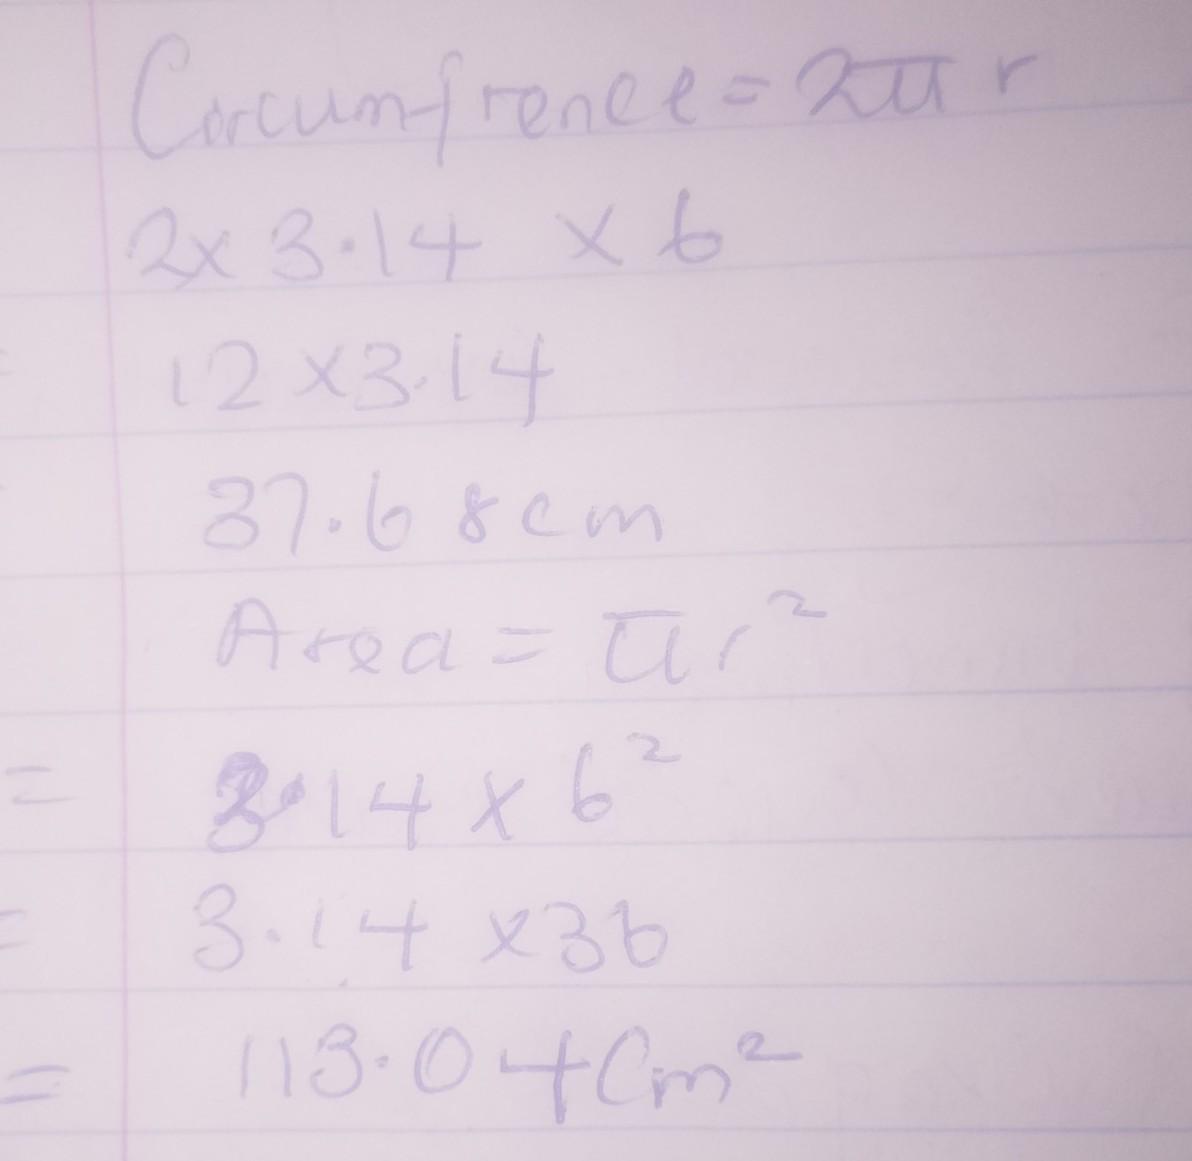 Circumfrence = 2πr
2x 3.14 x 6
= 12 x 3.14
37.68cm
Area = πr²
= 3.14 x 6²
= 3.14 x 36
= 113.04Cm²